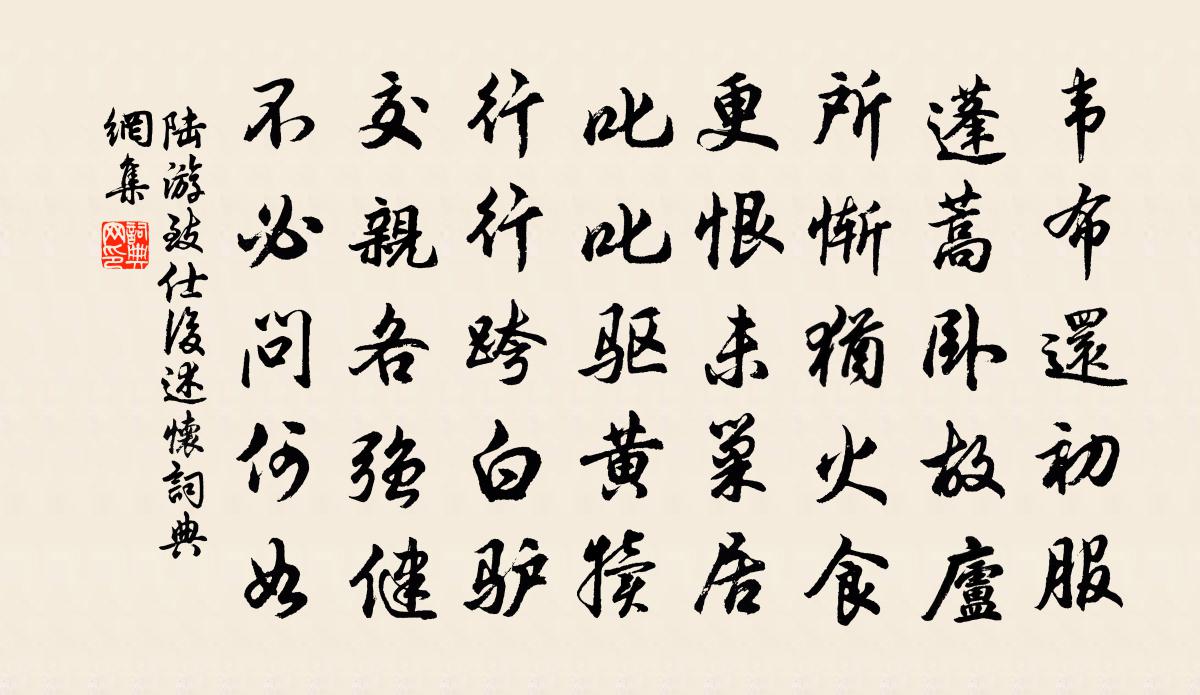 韦布還初服
蓬蒿卧故廬
所惭猶火食
更恨未巢居
叱叱驱黄犊
行行跨白驴
交親各强健
不必问何如
陆游致仕後述懷詞典
網集
詞典
网印